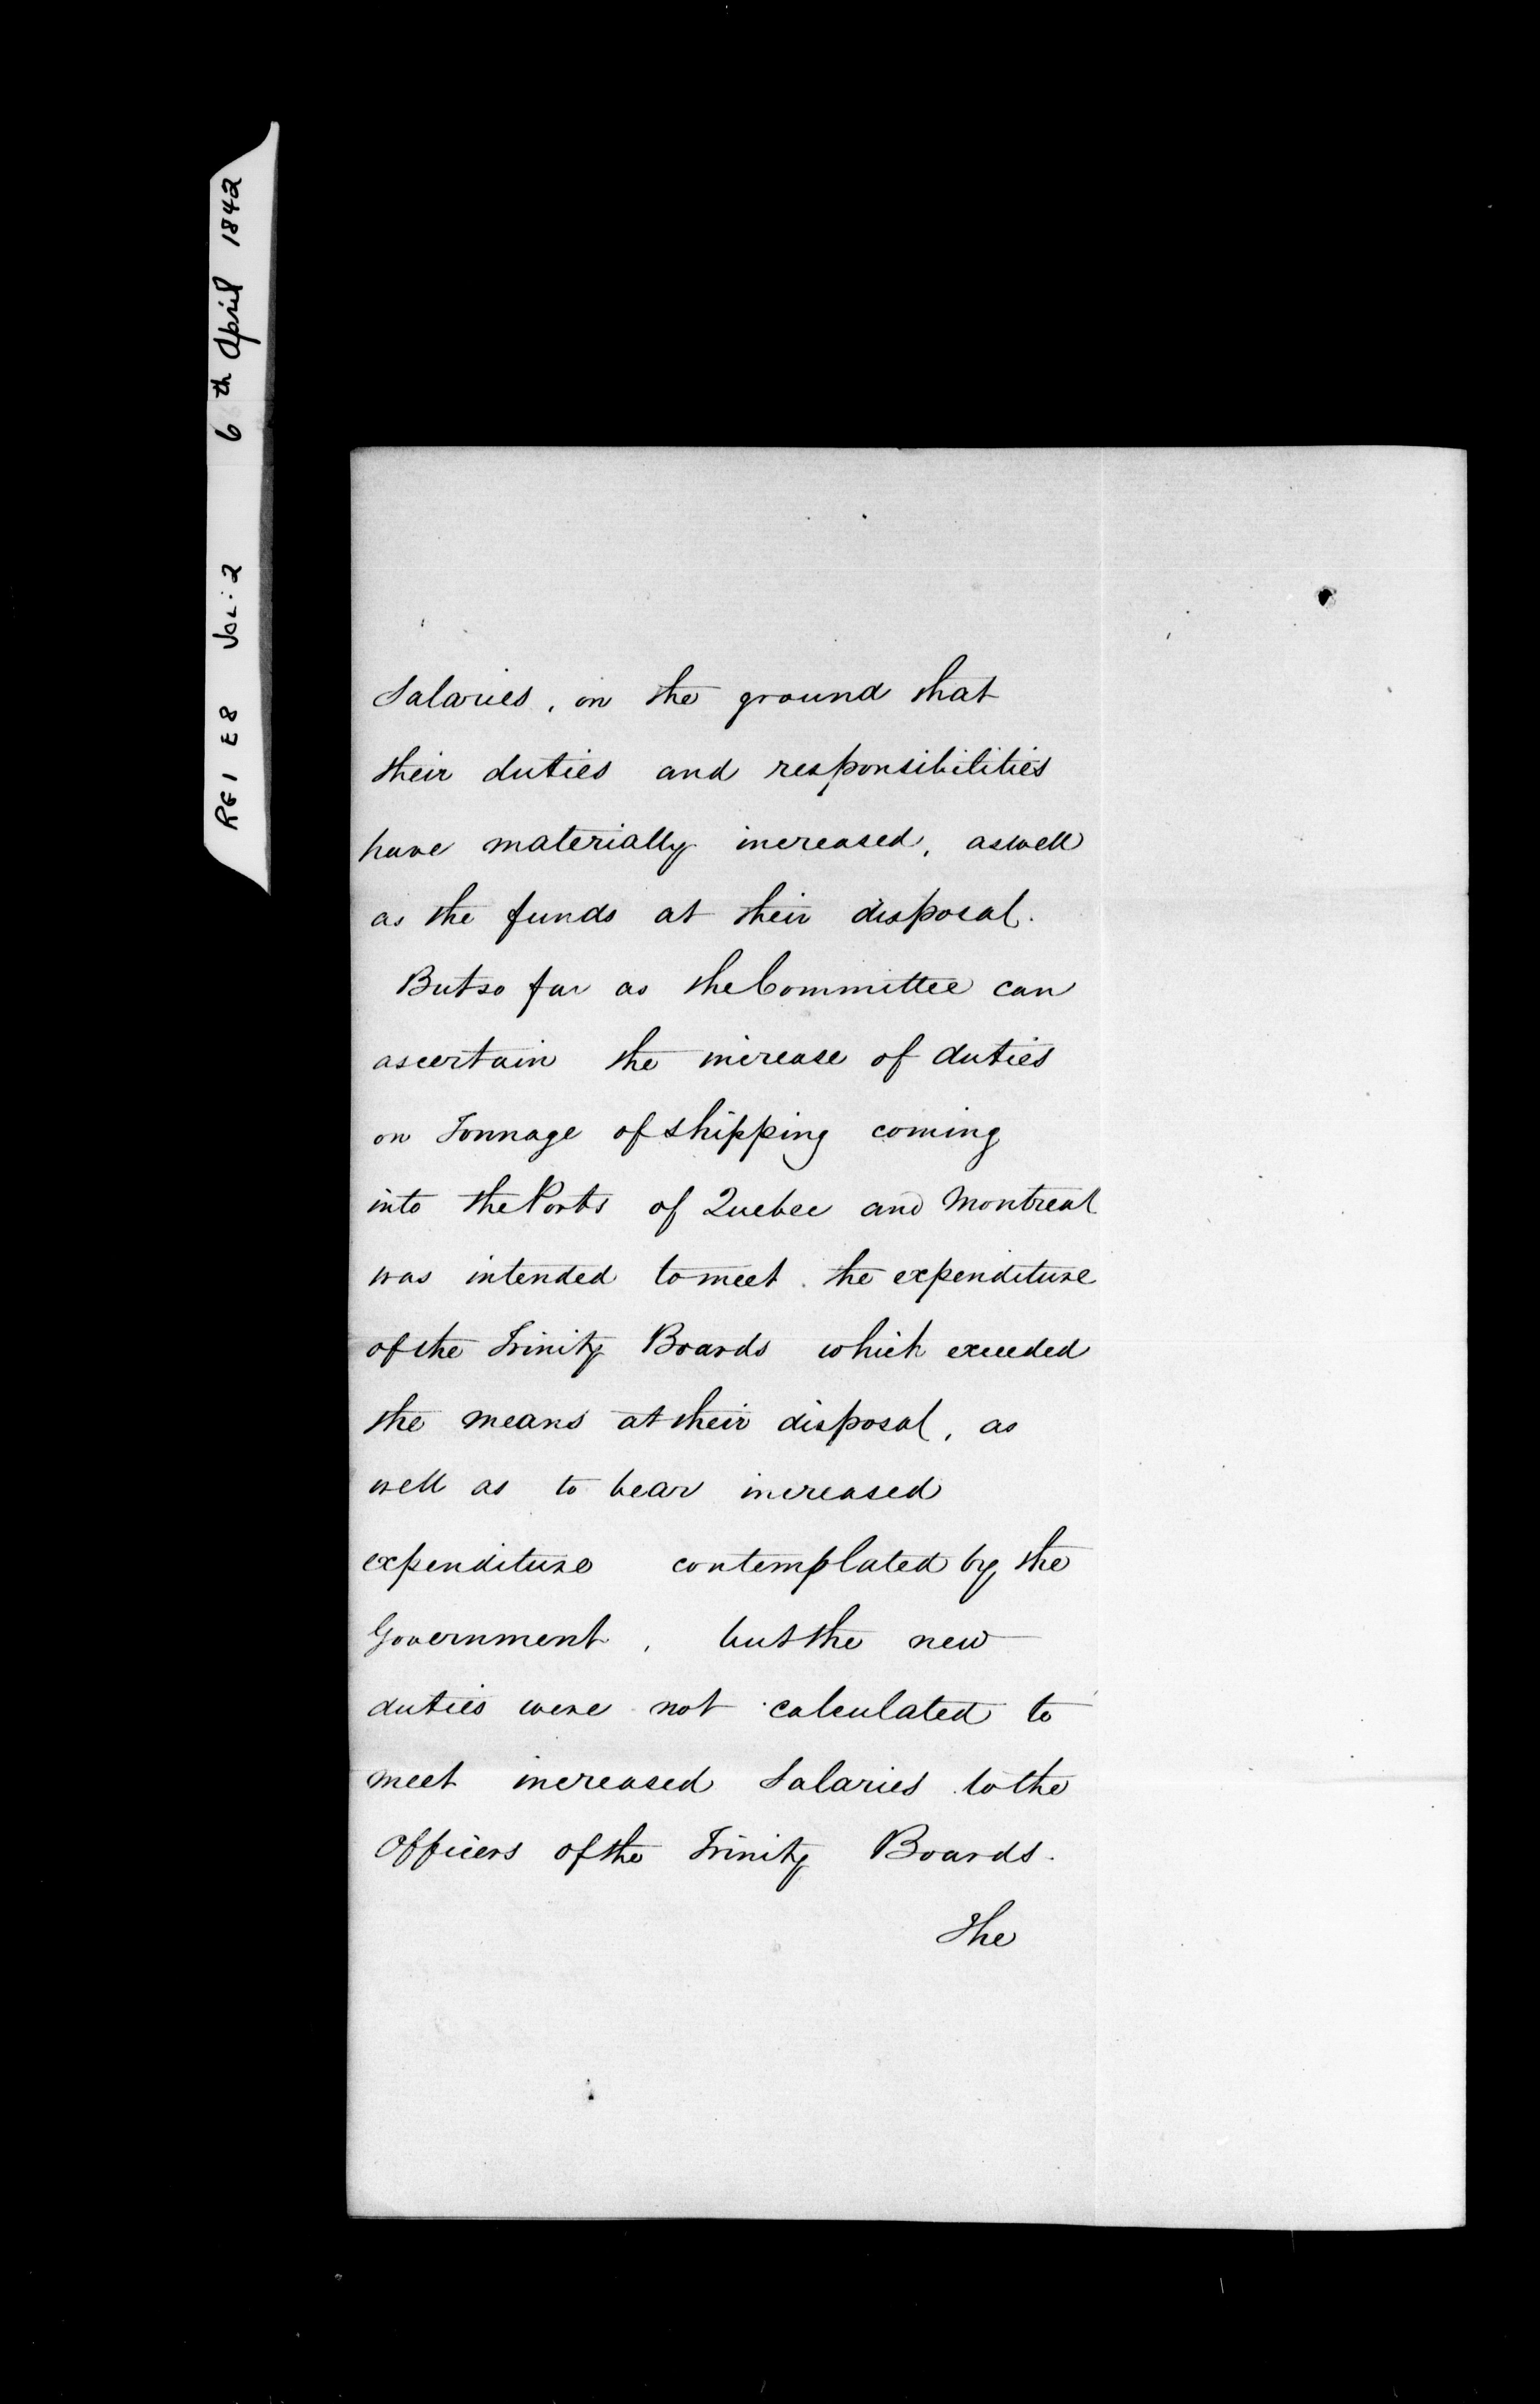 RG 1 E8 Vol: 2 6th April 1842
Salaries, on the ground that
their duties and responsibilities
have materially increased, as well
as the funds at their disposal.
But so far as the Committee can
ascertain the increase of duties
on Tonnage of shipping coming
into the Ports of Quebec and Montreal
was intended to meet the expenditure
of the Trinity Boards which exceeded
the means at their disposal, as
well as to bear increased
expenditure contemplated by the
Government, but the new
duties were not calculated to
meet increased Salaries to the
Officers of the Trinity Boards.
The